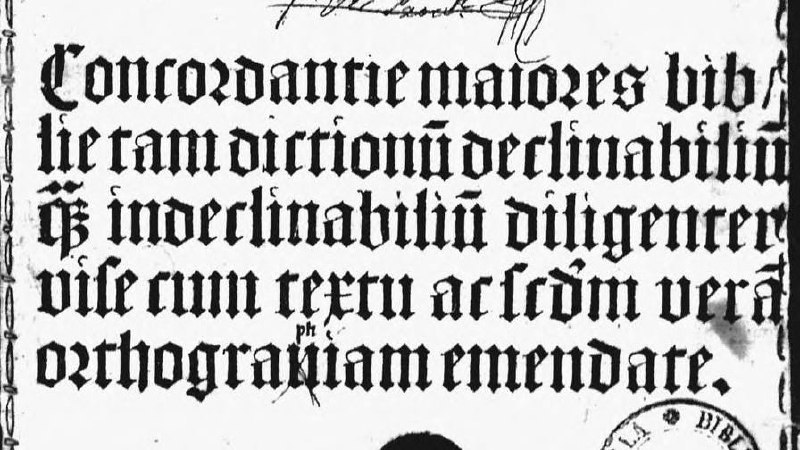 Concordantie maiores bib/
lie tam dictionū declinabiliū
q̃ꝫ indeclinabiliū diligenter
vise cum textu ac scd̓m verā
ph
orthograuiam emendate.
LA * BIBL